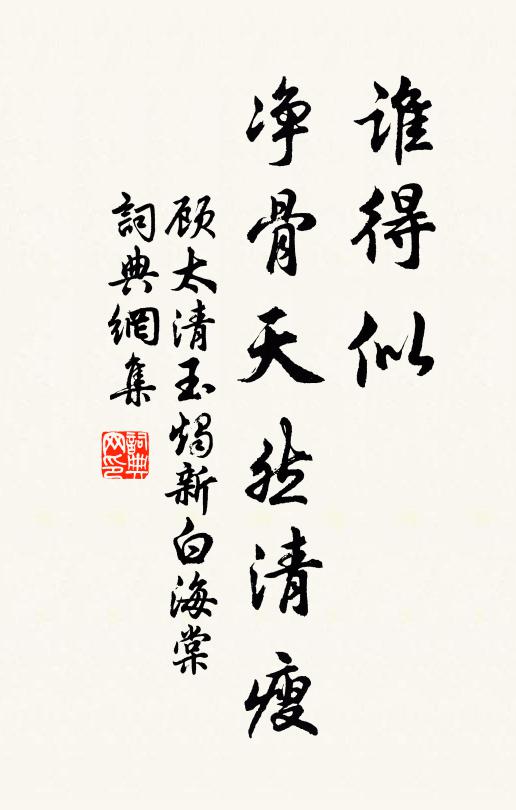 谁得似
净骨天然清瘦
顾太清玉烛新白海棠
詞典網集
詞典网印